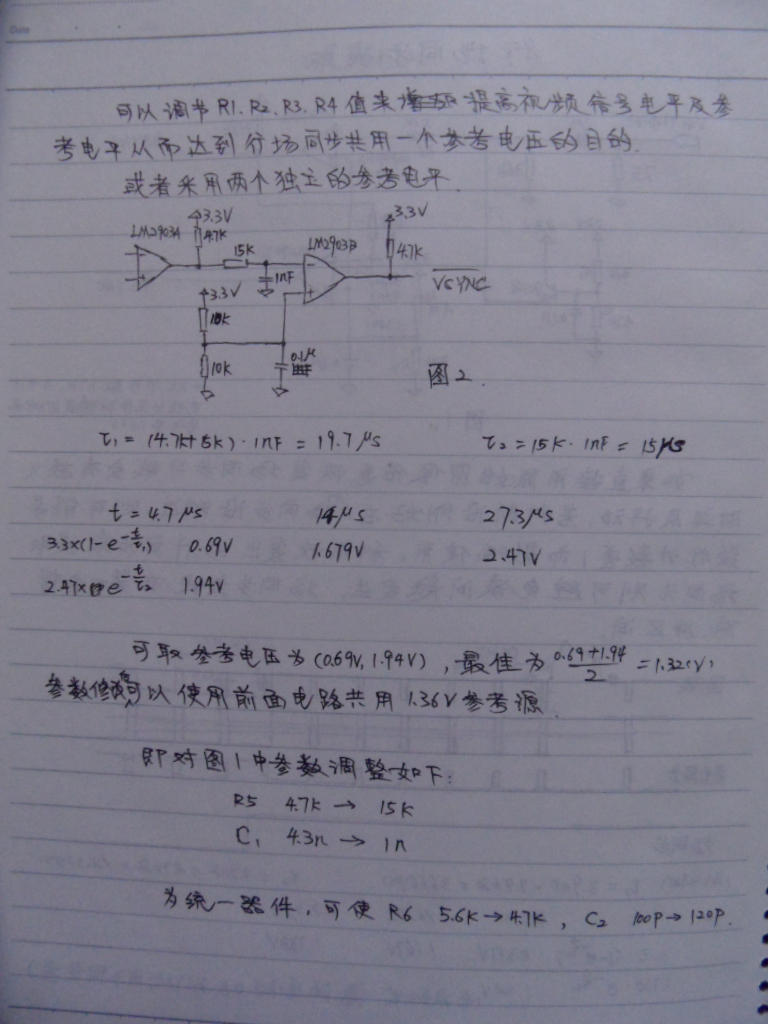 Date
可以调节 R1、R2、R3、R4 值来提高视频信号电平及参
考电平从而达到行场同步共用一个参考电压的目的.
或者采用两个独立的参考电平.
3.3V 3.3V
LM2903A 4.7K 15K LM2903B 4.7K
1nF VSYNC
3.3V
10K
10K 0.1μ
图2.
τ1 = (4.7K+15K)·1nF = 19.7μs τ2 = 15K·1nF = 15μs
t = 4.7μs 14μs 27.3μs
3.3×(1-e^-t/τ1) 0.69V 1.679V 2.47V
2.47×e^-t/τ2 1.94V
可取参考电压为 (0.69V, 1.94V), 最佳为 (0.69+1.94)/2 = 1.32(V)
参数修改后可以使用前面电路共用 1.36V 参考源.
即对图1中参数调整如下:
R5 4.7K → 15K
C1 4.3n → 1n
为统一器件, 可使 R6 5.6K→4.7K, C2 100P→120P.